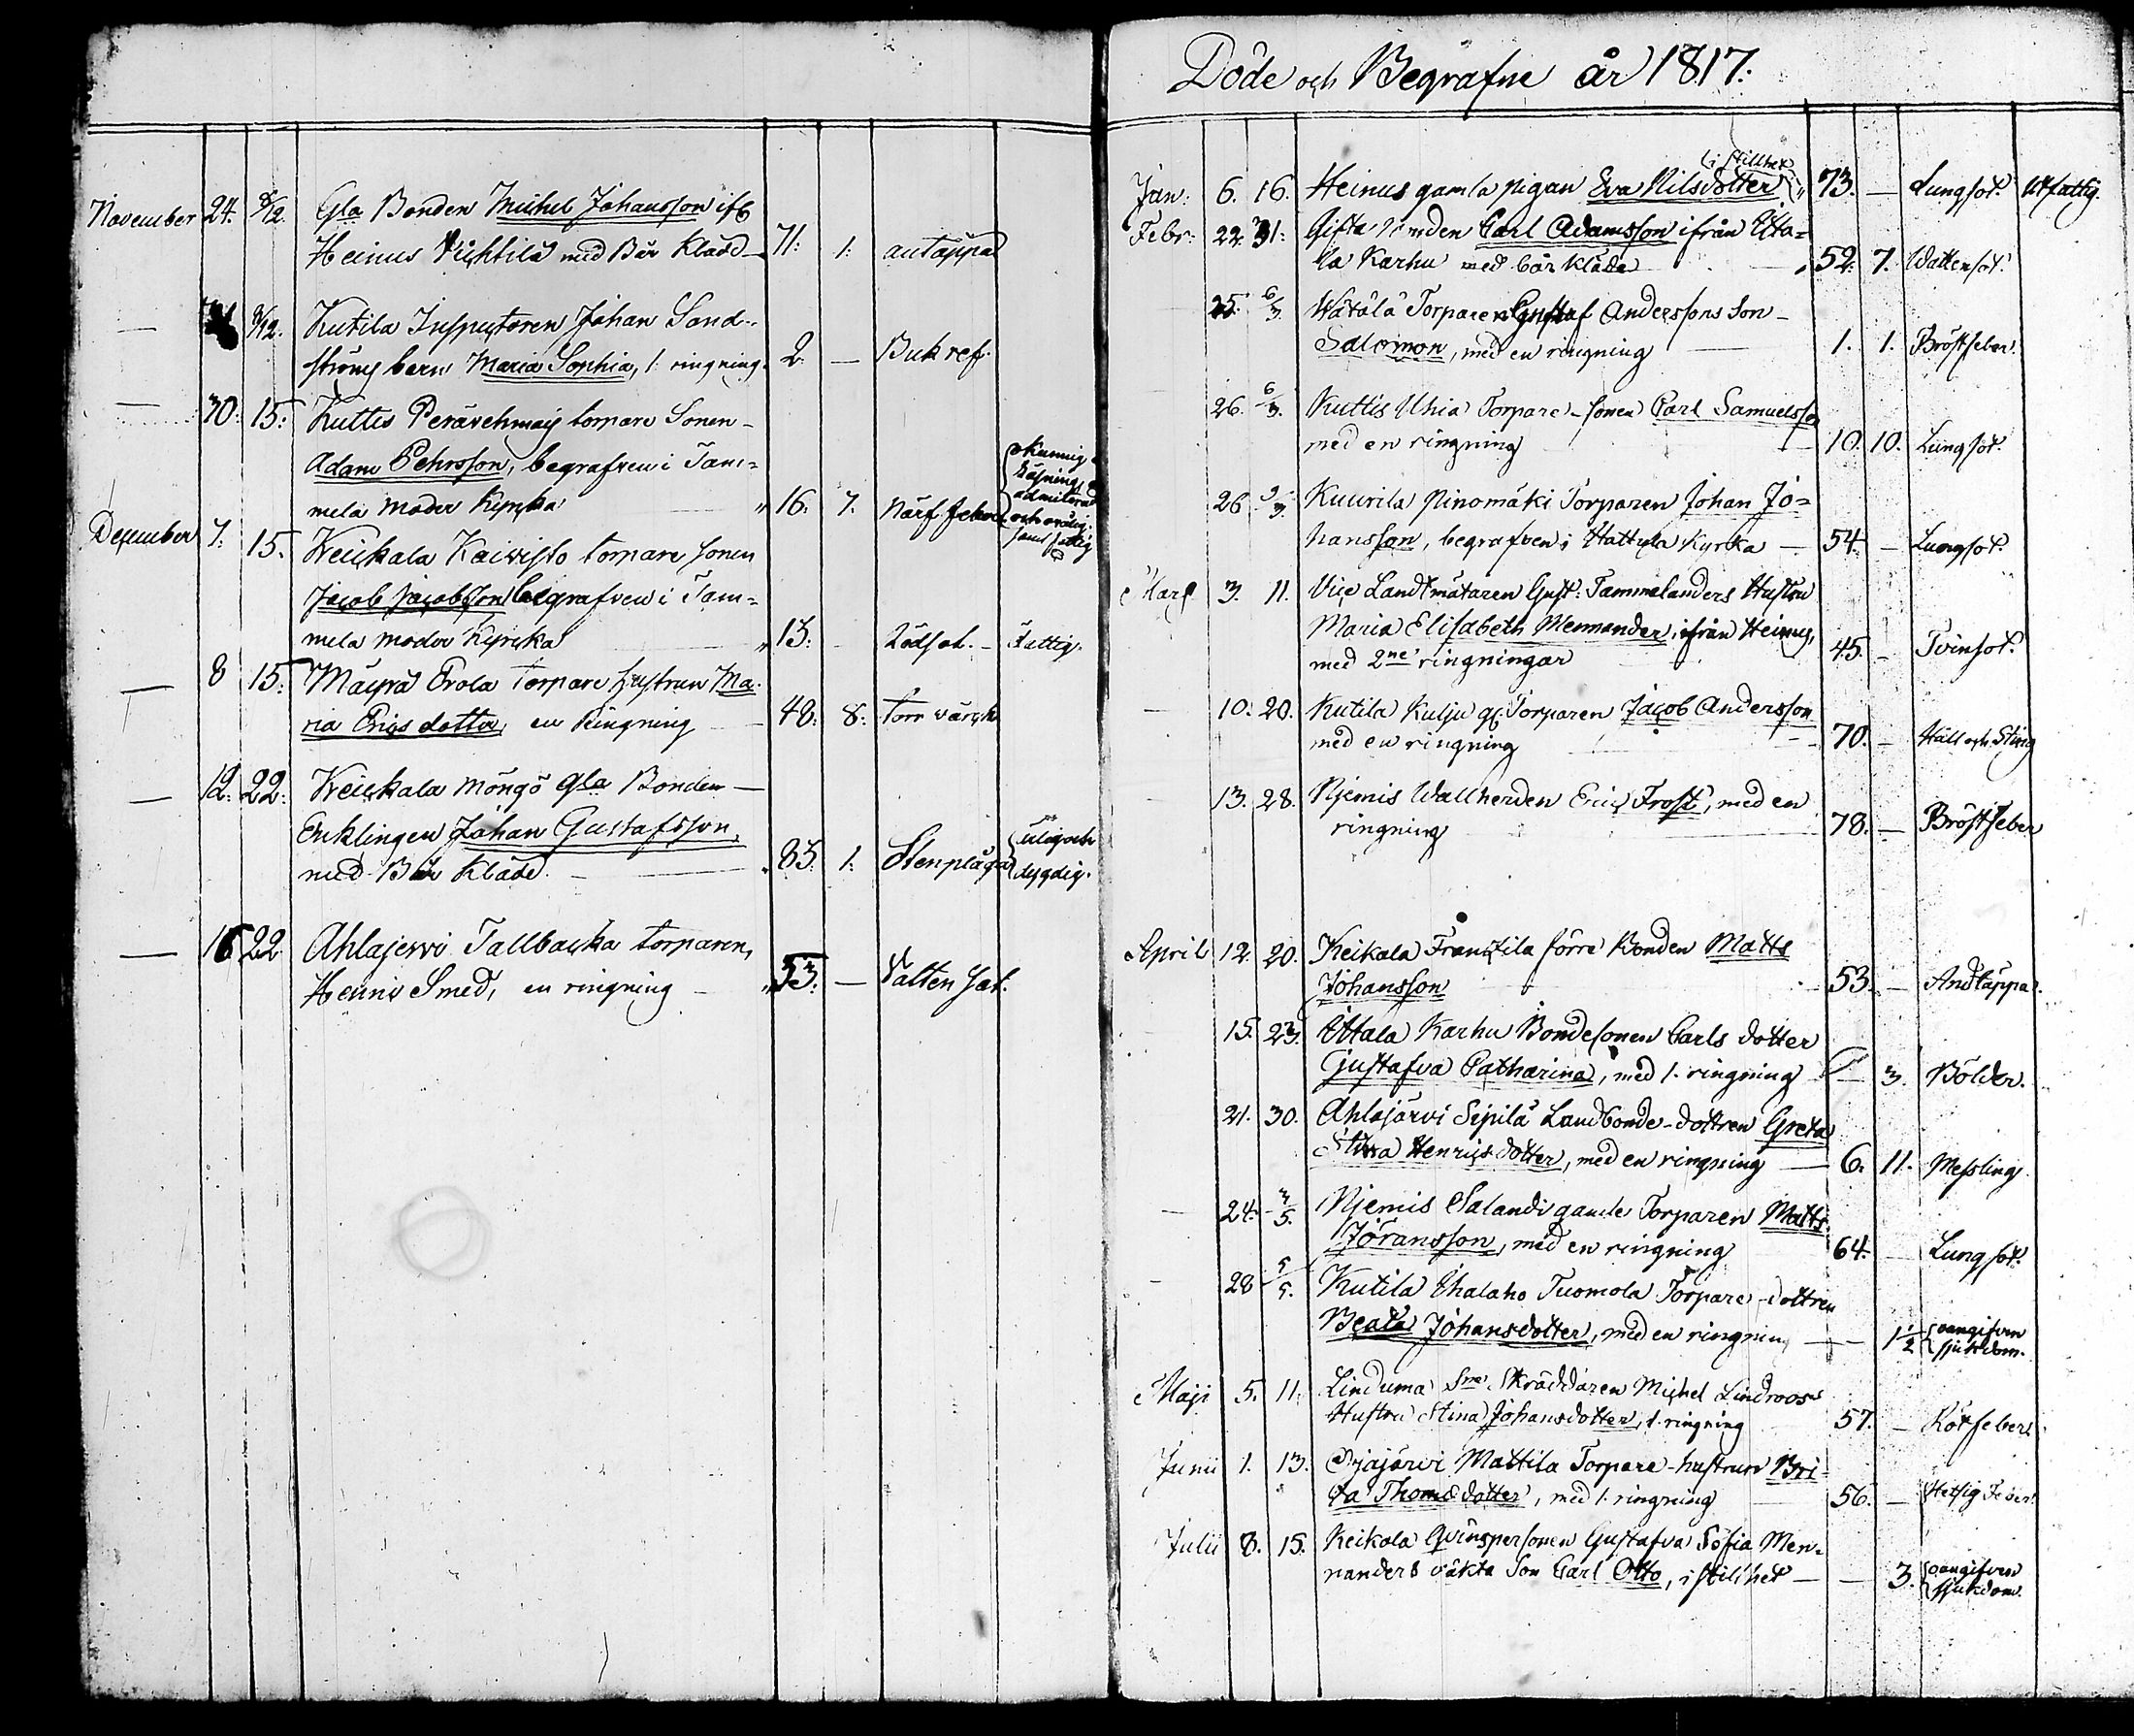 November 24. 8/12. Gla Bonden Michel Johansson ifr
Heinus med Bår Kläd — 71: 1: andtäppa
— 8/12. Kutila Inspectoren Johan Sand-
ströms barn Maria Sophia, 1. ringning. 2. — Bukref.
— 30. 15. Kuttis torpare Sonen —
Adam Pehrsson, begrafven i Tam=
mela moder Kyrcka " 16. 7. Närf. feber
December 7. 15. Keickala torpare sonen
Jacob Jacobsson begrafven i Tam=
mela moder Kyrcka " 13: - Rödsot. - Fattig.
— 8 15. Mäyrä Erola Torpare hustrun Ma-
ria Erics dotter, en Ringning — 48: 8: torr värck
— 12. 22. Keickala Möngö gla Bonden —
Enklingen Johan Gustafsson,
med Bår Kläde. — 85. 1. Stenplåga dygdig.
— 16 22. Ahlajervi Tallbacka torparen,
Henric Smed, en ringning — " 53. — Vatten sot.
Döde och Begrafne år 1817:
i stillhet
Jan: 6. 16. Heinus gamla pigan Eva Nilsdotter " 73. — Lungsot. Utfattig.
Febr: 22. 31: Gifta Bonden Carl Adamsson ifrån Itta=
la Karhu med bår kläde 52. 7. Wattensot.
25. 6/3. Torparen Gustaf Anderssons Son —
Salomon, med en ringning — 1. 1. Bröstfeber.
26. 6/3. Kuttis Uhia Torpare-sonen Carl Samuelsson
med en ringning 10. 10. Lungsot.
26 9/3. Kuurila Ninomäki Torparen Johan Jo=
hansson, begrafven i Hattula Kyrka — 54. — Lungsot.
Mars 3. 11. Vice Landtmätaren Gust: Tammelanders Hustru
Maria Elisabeth Mennander, ifrån Heinus,
med 2ne ringningar 45. — Tvinsot.
— 10. 20. Kutila Kulju gl. Torparen Jacob Andersson
med en ringning 70. — Håll och Sting
13. 28. Njemis Wallherden Eric Frost, med en
ringning 78. — Bröstfeber
April 12. 20. Keikala Franttila förre Bonden Matts
Johansson 53. — Andtäppa.
15. 23. Ittala Karhu Bondesonen Carls dotter
Gustafva Catharina, med 1. ringning — 3. Bölder.
21. 30. Ahlajärvi Sipilä Landbonde-dottren Greta
Stina Henricsdotter, med en ringning — 6. 11. Messling
— 24. 3/5. Njemis Salandi gamle Torparen Matts
Jöransson, med en ringning 64. — Lungsot.
— 28 5/5. Kutila Uhalaho Tuomola Torpare-dottren
Beata Johansdotter, med en ringning — — 1 1/2 oangifven
sjukdom.
Maji 5. 11. Linduma Skräddaren Michel Lindroos
Hustru Stina Johansdotter, 1. ringning 57. — Rötfeber.
Junii 1. 13. Mattila Torpare-hustrun Bri-
ta Thomædotter, med 1. ringning 56. — Hetsig Feber.
Julii 8. 15. Keikala Qvinspersonen Gustafva Sofia Men-
nanders oäkta Son Carl Otto, i stillhet — — 3. oangifven
sjukdom.